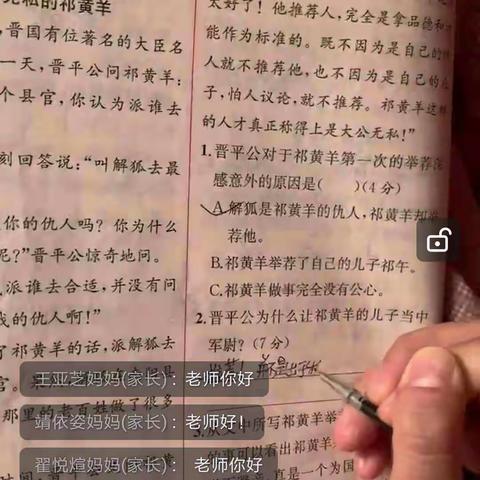 无私的祁黄羊
晋国有位著名的大臣名
一天，晋平公问祁黄羊：
个县官，你认为派谁去
刻回答说：“叫解狐去最
你的仇人吗？你为什么
呢？”晋平公惊奇地问。
派谁去合适，并没有问
我的仇人啊！”
了祁黄羊的话，派解狐去
官。
那里的老百姓做了很多
太好了！他推荐人，完全是拿品德和才
能作为标准的。既不因为是自己的仇
人就不推荐他，也不因为是自己的儿
子，怕人议论，就不推荐。祁黄羊这样
的人才真正称得上是大公无私！”
1.晋平公对于祁黄羊第一次的举荐
感意外的原因是（　　）(4分)
A.解狐是祁黄羊的仇人，祁黄羊却
荐他。
B.祁黄羊举荐了自己的儿子祁午。
C.祁黄羊做事完全没有公心。
2.晋平公为什么让祁黄羊的儿子当中
军尉？(7分)
文中所写祁黄羊举
的事可以看出祁黄羊
真是一个为国
王亚芝妈妈(家长)：老师你好
靖依姿妈妈(家长)：老师好！
翟悦煊妈妈(家长)：老师你好